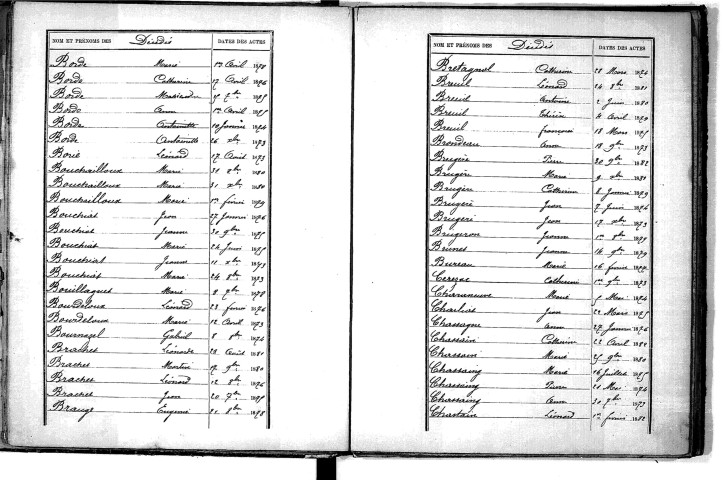 NOM ET PRÉNOMS DES Décédés DATES DES ACTES
Borde Marie 1er Avril 1870
Borde Catherine 17 Avril 1876
Borde
Borde Anna 1er Avril
Borde Antoinette 10 Janvier 1874
Borde Antoinette 26 xbre 1873
Borie Léonard 17 Avril 1873
Bouchailloux Marie 30 8bre 1880
Bouchailloux Marie 31 xbre 1880
Bouchailloux Marie 1er février 1879
Bouchiat Jean 27 Janvier 1876
Bouchiat Jeanne 30 9bre 1875
Bouchiat Marie 24 Juin 1875
Bouchiat Jeanne 11 xbre 1873
Bouchiat Marie 24 8bre 1873
Bouillaguet Marie 2 7bre 1878
Bourdeloux Léonard 23 février 1876
Bourdeloux Marie 12 Avril 1873
Bournazel Gabriel 8 1874
Brachet Léonarde 28 Août 1881
Brachet Martial 17 9bre 1880
Brachet Léonard 12 8bre 1876
Brachet Jean 20 1875
Brauge Eugénie 21 8bre 1878
NOM ET PRÉNOMS DES Décédés DATES DES ACTES
Bretagnol Catherine 28 Mars 1874
Breuil Léonard 24 8bre 1881
Breuil Antoine 2 Juin 1880
Breuil Thérèse 4 Avril 1879
Breuil françois 18 Mars 1875
Brondeau Anna 18 9bre 1873
Brugère Pierre 20 9bre 1882
Brugère Marie 9 xbre 1881
Brugère Catherine 8 Janvier 1879
Brugère Jean 7 Juin 1874
Brugère Jean 17 xbre 1873
Brugeron Jeanne 1er 8bre 1879
Brunes Jeanne 16 9bre 1879
Bureau Marie 16 février
Cerezac Catherine 1er 9bre 1873
Charmeneuve Marie 5 Mai 1874
Charlus Jean 22 Mars 1875
Chassagne Anna 27 Janvier 1876
Chassain Catherine 22 Avril 1882
Chassain Marie 25 9bre 1880
Chassaing Marie 16 Juillet 1875
Chassaing Pierre 20 Mai 1874
Chassaing Anna 30 7bre 1873
Chastain Léonard 1er février 1882